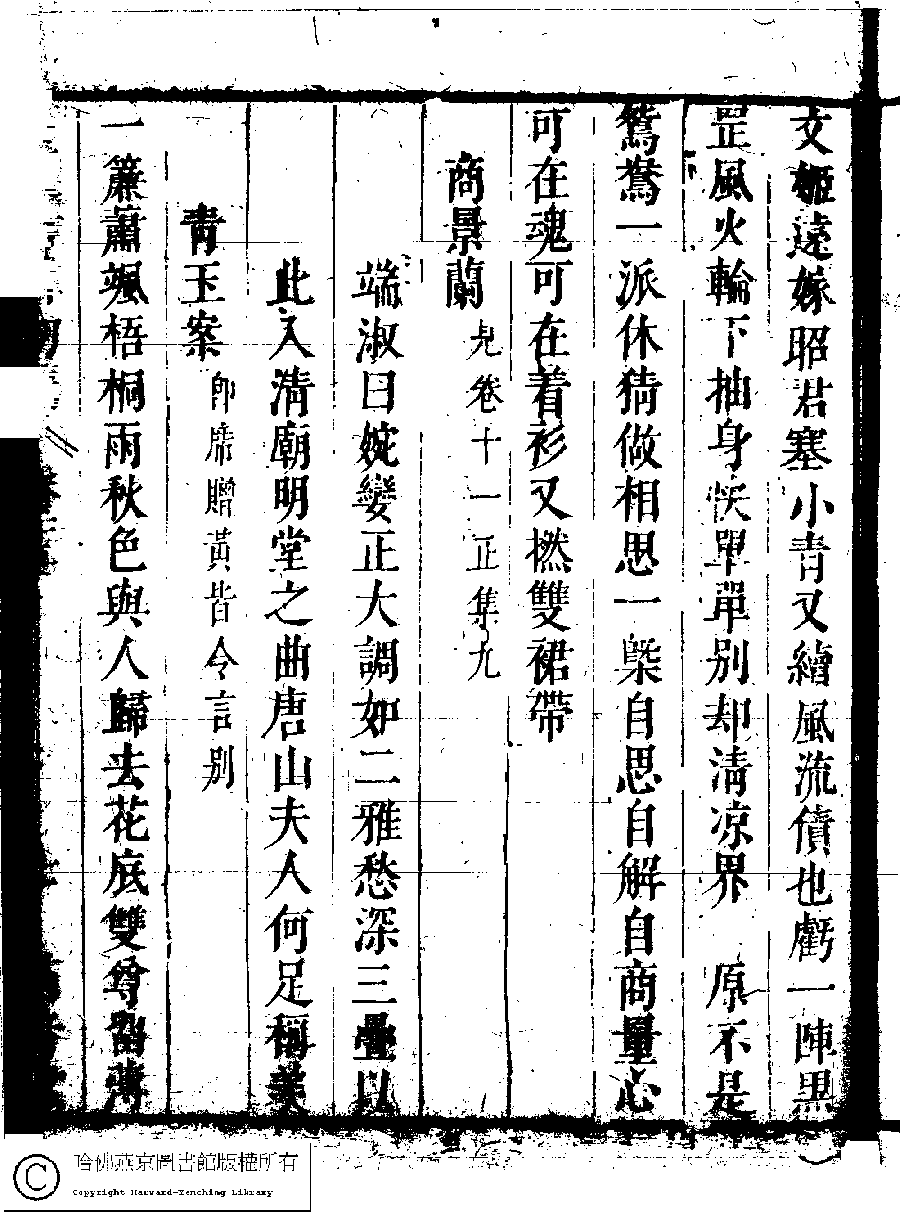 文姬遠嫁昭君塞小青又續風流債也虧一陣黒
罡風火輪下抽身快單單別却清凉界　原不是
鴛鴦一派休猜做相思一槩自思自解自商量心
可在魂可在着衫又撚雙裙帶
商景蘭　見卷十一正集九
端淑曰婉孌正大調如二雅愁深三疊以
此入清廟明堂之曲唐山夫人何足稱美
青玉案　即席贈黃皆令言別
一簾蕭颯梧桐雨秋色與人歸去花底雙尊留薄
哈佛燕京圖書館版權所有
Copyright Harvard-Yenching Library